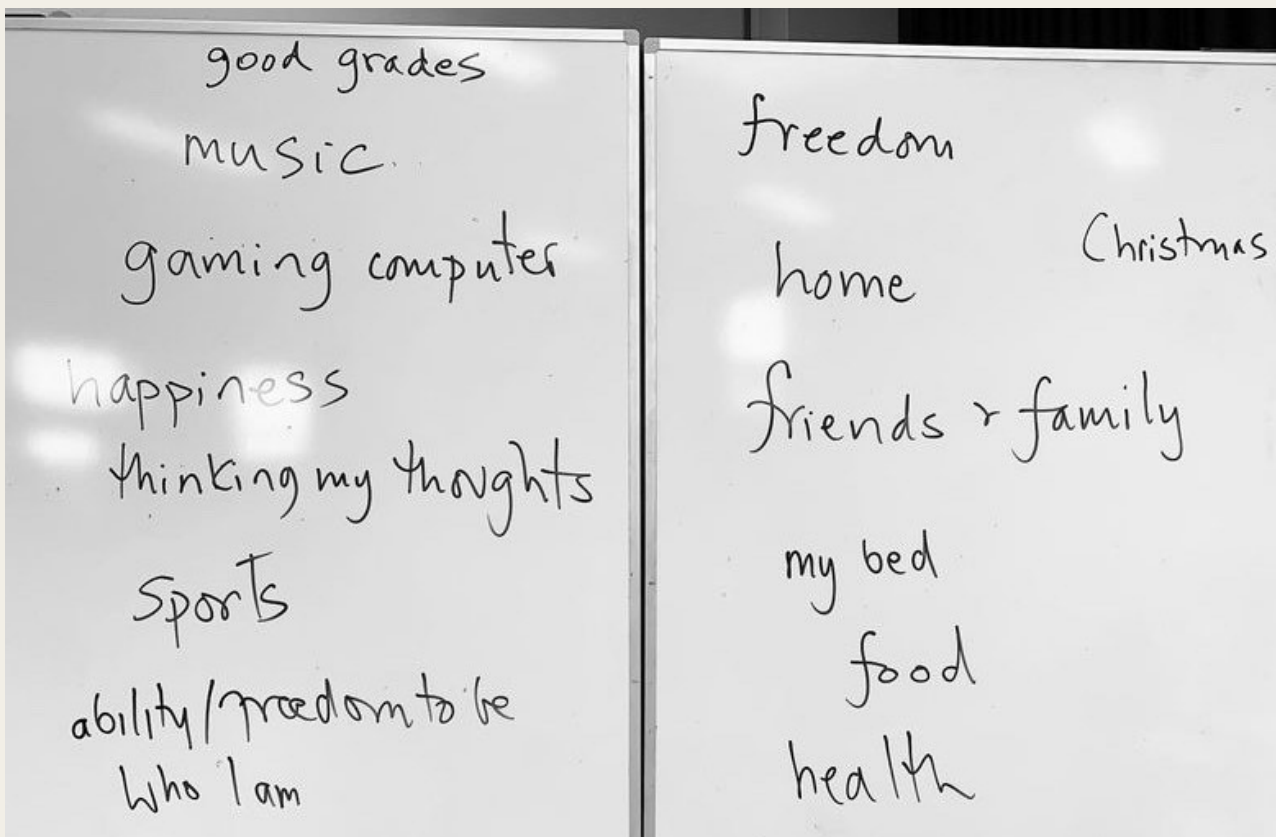 good grades
music
gaming computer
happiness
thinking my thoughts
sports
ability/freedom to be
who I am
freedom
Christmas
home
friends & family
my bed
food
health